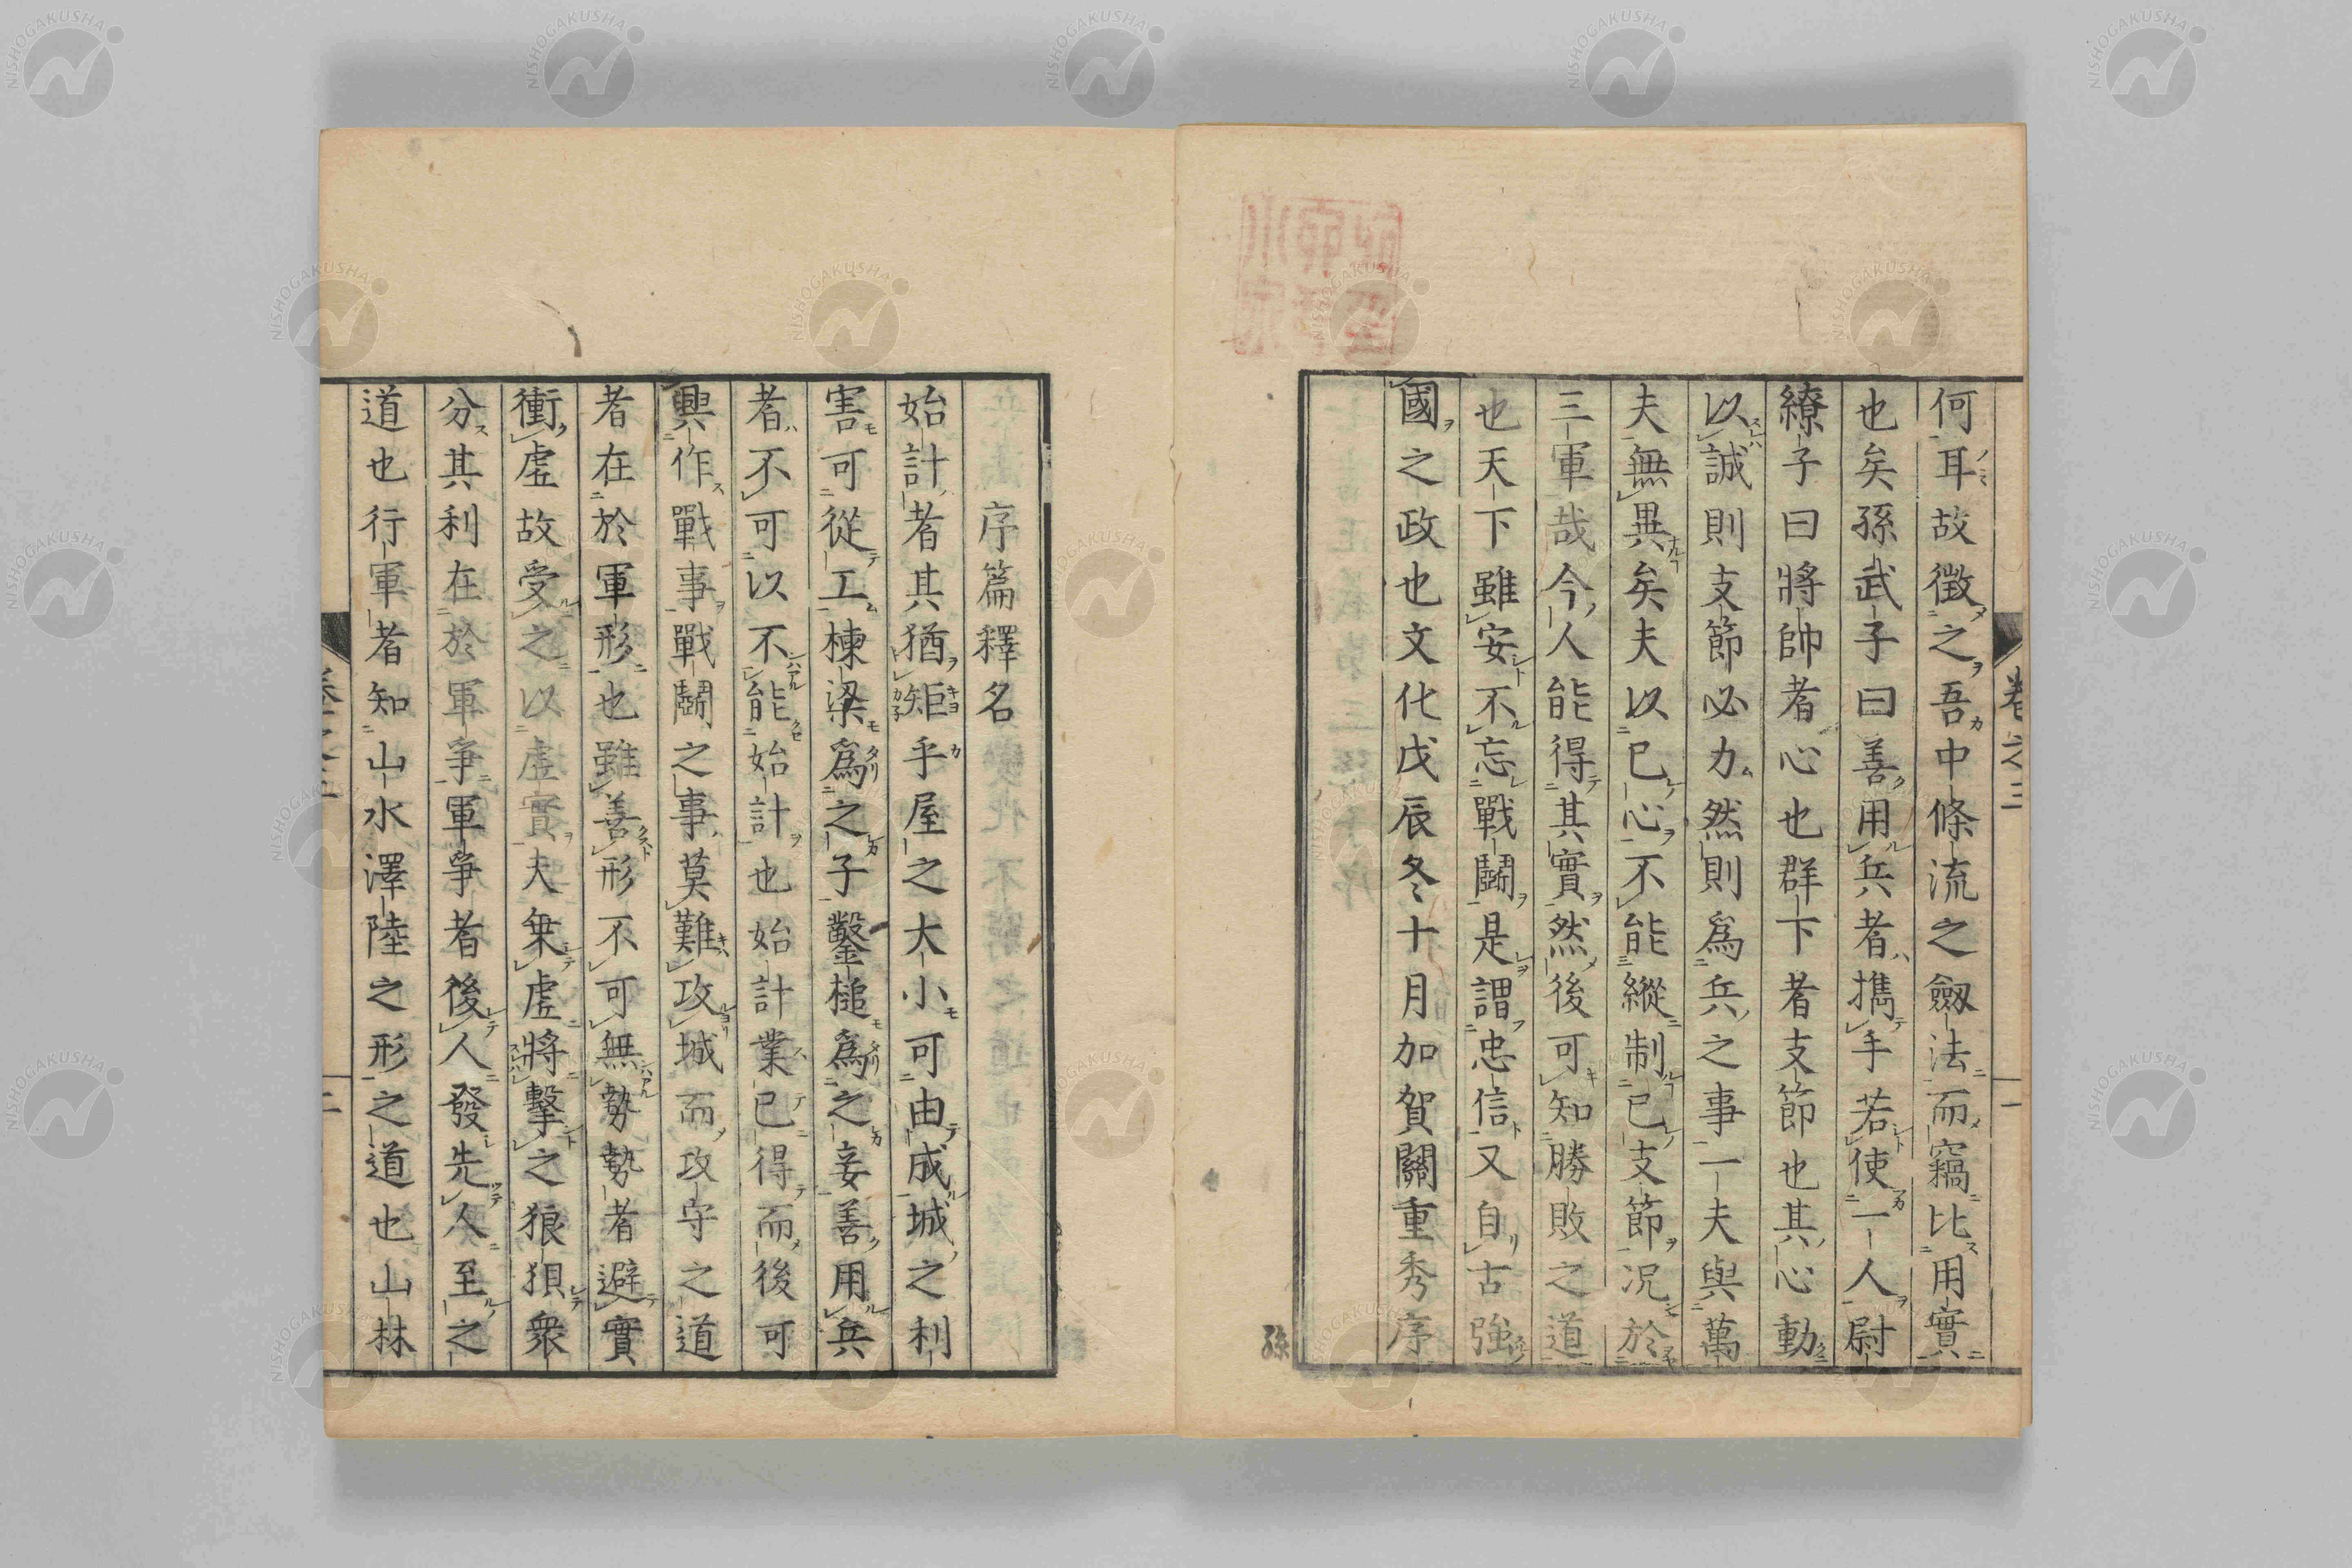 何耳故徴之吾中條流之劔法而竊比用實
也矣孫武子曰善用兵者攜手若使一人尉
繚子曰將帥者心也群下者支節也其心動
以誠則支節必力然則爲兵之事一夫與萬
夫無異矣夫以已心不能縱制已支節况於
三軍哉今人能得其實然後可知勝敗之道
也天下雖安不忘戰鬪是謂忠信又自古強
國之政也文化戊辰冬十月加賀關重秀序
孫
序篇釋名
始計者其猶矩乎屋之大小可由成城之利
害可從工棟梁爲之子鑿槌爲之妾善用兵
者不可以不能始計也始計業已得而後可
興作戰事戰鬪之事莫難攻城而攻守之道
者在於軍形也雖善形不可無勢勢者避實
衝虛故受之以虛實夫乗虛將擊之狼狽衆
分其利在於軍爭軍爭者後人發先人至之
道也行軍者知山水澤陸之形之道也山林
卷之三
一
二
NISHOGAKUSHA